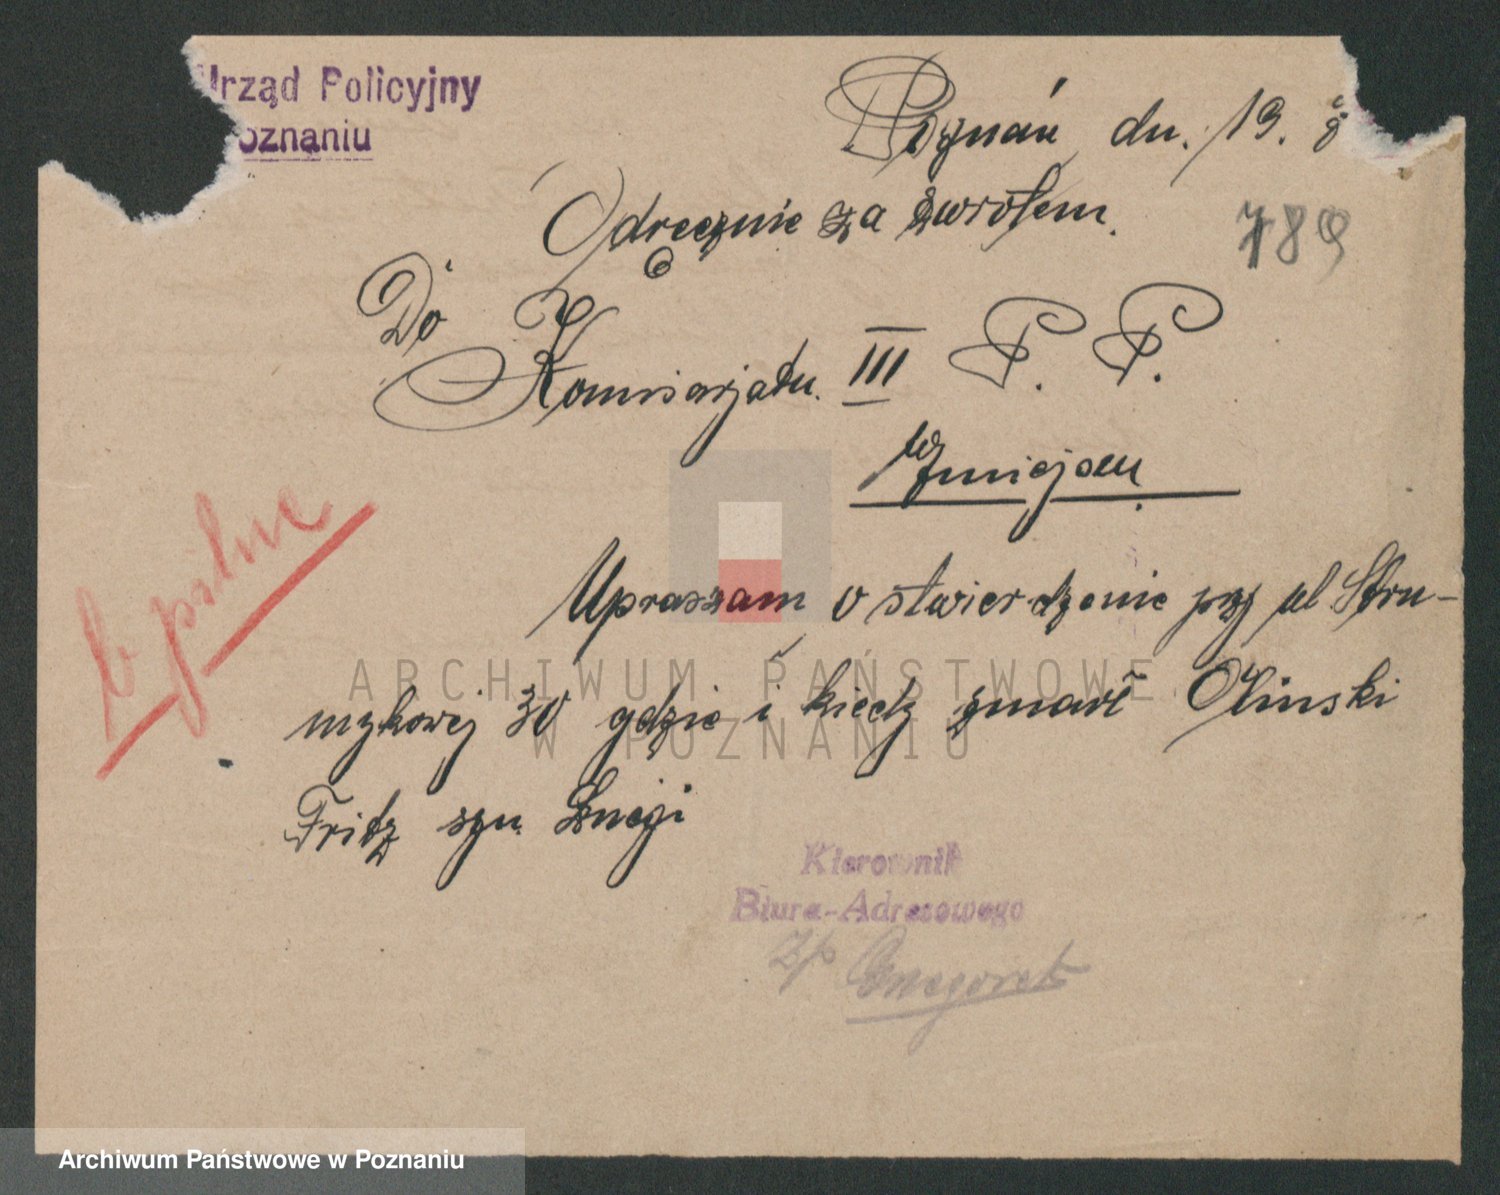 Urząd Policyjny
Poznaniu
Poznań dn. 13. 8
Odręcznie za zwrotem.
789
Do
Komisarjatu III P. P.
w miejscu
b pilne
Upraszam o stwierdzenie przy ul Stru-
mykowej 30 gdzie i kiedy zmarł Olinski
Fritz syn
Kierownik
Biura-Adresowego
zp
ARCHIWUM PAŃSTWOWE
W POZNANIU
Archiwum Państwowe w Poznaniu